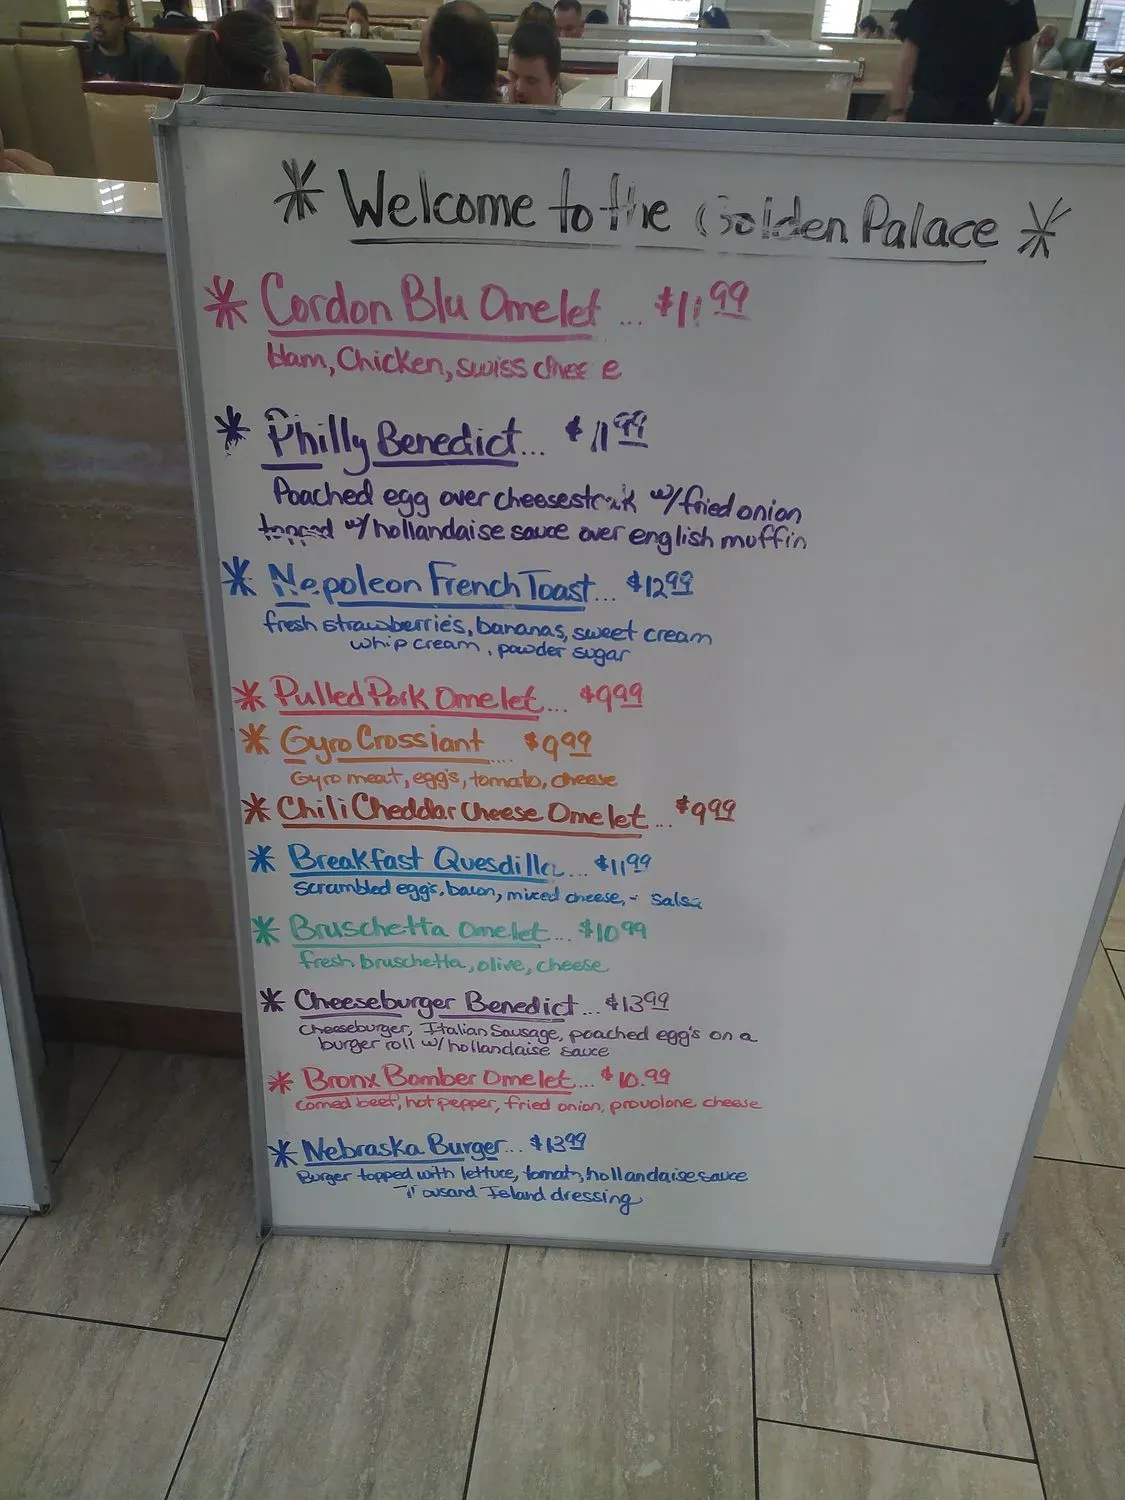 * Welcome to the Golden Palace *
* Cordon Blu Omelet ... $11.99
Ham, Chicken, swiss cheese
* Philly Benedict... $11.99
Poached egg over cheesesteak w/fried onion
topped w/hollandaise sauce over english muffin
* Nepoleon French Toast... $12.99
fresh strawberries, bananas, sweet cream
whip cream, powder sugar
* Pulled Pork Omelet... $9.99
* Gyro Crossiant .... $9.99
Gyro meat, egg's, tomato, cheese
* Chili Cheddar Cheese Omelet... $9.99
* Breakfast Quesdilla... $11.99
scrambled egg's, bacon, mixed cheese, - salsa
* Bruschetta Omelet... $10.99
fresh bruschetta, olive, cheese
* Cheeseburger Benedict... $13.99
Cheeseburger, Italian Sausage, poached egg's on a
burger roll w/hollandaise sauce
* Bronx Bomber Omelet... $10.99
corned beef, hot pepper, fried onion, provolone cheese
* Nebraska Burger... $13.99
Burger topped with lettuce, tomato, hollandaise sauce
Thousand Island dressing